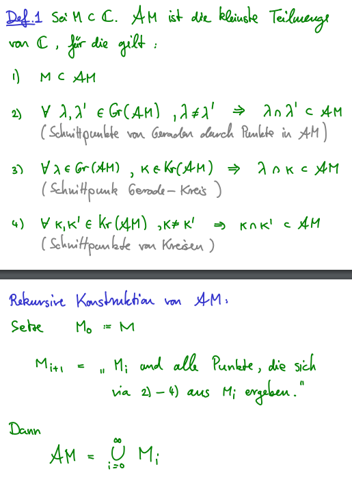 Def.1 Sei M ⊂ ℂ. AM ist die kleinste Teilmenge
von ℂ, für die gilt:
1) M ⊂ AM
2) ∀ λ, λ' ∈ Gr(AM), λ ≠ λ' ⇒ λ ∩ λ' ⊂ AM
(Schnittpunkte von Geraden durch Punkte in AM)
3) ∀ λ ∈ Gr(AM), κ ∈ Kr(AM) ⇒ λ ∩ κ ⊂ AM
(Schnittpunkt Gerade-Kreis)
4) ∀ κ, κ' ∈ Kr(AM), κ ≠ κ' ⇒ κ ∩ κ' ⊂ AM
(Schnittpunkte von Kreisen)
Rekursive Konstruktion von AM:
Setze M₀ := M
Mᵢ₊₁ = „Mᵢ und alle Punkte, die sich
via 2)-4) aus Mᵢ ergeben."
Dann
AM = ⋃_{i=0}^{∞} Mᵢ